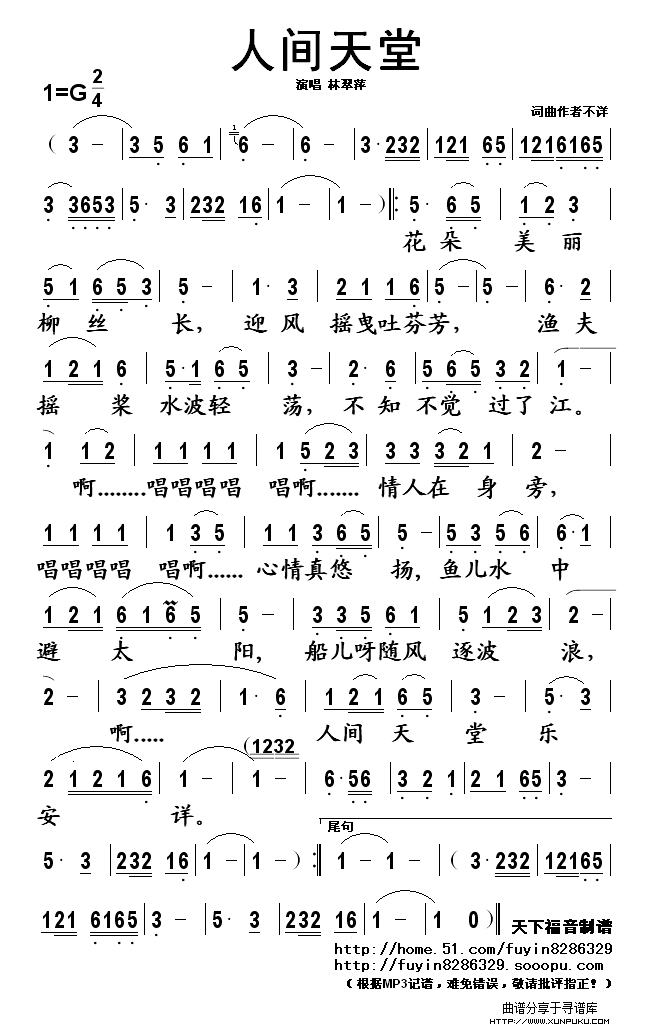 人间天堂
演唱 林翠萍
1=G 2/4
词曲作者不详
( 3 - | 3 5 6 1 | 1 6 - | 6 - | 3· 232 | 121 65 | 1216165 |
3 3653 | 5· 3 | 232 16 | 1 - | 1 - ) ‖: 5· 6 5 | 1 2 3 |
花 朵 美 丽
5 1 6 5 3 | 5 - | 1· 3 | 2 1 1 6 | 5 - | 5 - | 6· 2 |
柳 丝 长, 迎 风 摇 曳 吐 芬 芳, 渔 夫
1 2 1 6 | 5·1 6 5 | 3 - | 2· 6 | 5 6 5 3 2 | 1 - |
摇 桨 水波轻 荡, 不 知 不 觉 过了 江。
1 1 2 | 1 1 1 1 | 1 5 2 3 | 3 3 3 2 1 | 2 - |
啊........唱唱唱唱 唱啊....... 情人在 身 旁,
1 1 1 1 | 1 3 5 | 1 1 3 6 5 | 5 - | 5 3 5 6 | 6·1 |
唱唱唱唱 唱啊...... 心情真悠 扬, 鱼儿水 中
1 2 1 6 1 6 5 | 5 - | 3 3 5 6 1 | 5 1 2 3 | 2 - |
避 太 阳, 船儿呀随风 逐波 浪,
2 - | 3 2 3 2 | 1· 6 | 1 2 1 6 5 | 3 - | 5· 3 |
啊..... 人间 天 堂 乐
(1232
2 1 2 1 6 | 1 - | 1 - | 6·56 | 3 2 1 | 2 1 65 | 3 - |
安 详。
尾句
5· 3 | 232 16 | 1 - | 1 - ) :‖ 1 - | 1 - | ( 3· 232 | 12165 |
121 6165 | 3 - | 5· 3 | 232 16 | 1 - | 1 0 ) ‖
天下福音制谱
http://home.51.com/fuyin8286329
http://fuyin8286329.sooopu.com
(根据MP3记谱,难免错误,敬请批评指正!)
曲谱分享于寻谱库
HTTP://WWW.XUNPUKU.COM